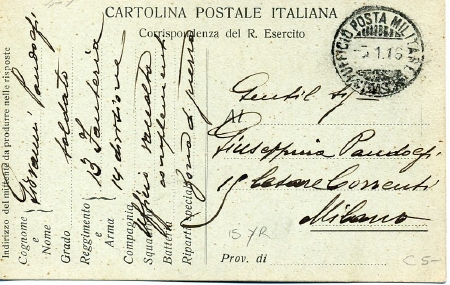 CARTOLINA POSTALE ITALIANA
Corrispondenza del R. Esercito
UFFICIO POSTA MILITARE
5.1.16
Gentil Sig
Giuseppina Pandolfi
19 Cesare Correnti
Milano
Prov. di
15 YR
C 5-
Indirizzo del mittente da produrre nelle risposte
Cognome e Nome Giovanni Pandolfi
Grado soldato
Reggimento e Arma 13 Fanteria
14 divisione
Compagnia Ufficio
Squadrone complementi
Batteria
Riparti speciali zona di guerra